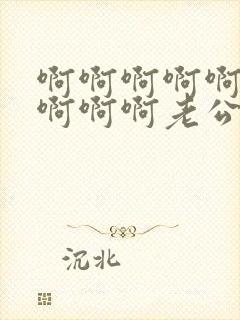 啊啊啊啊啊
啊啊啊老公
沉北